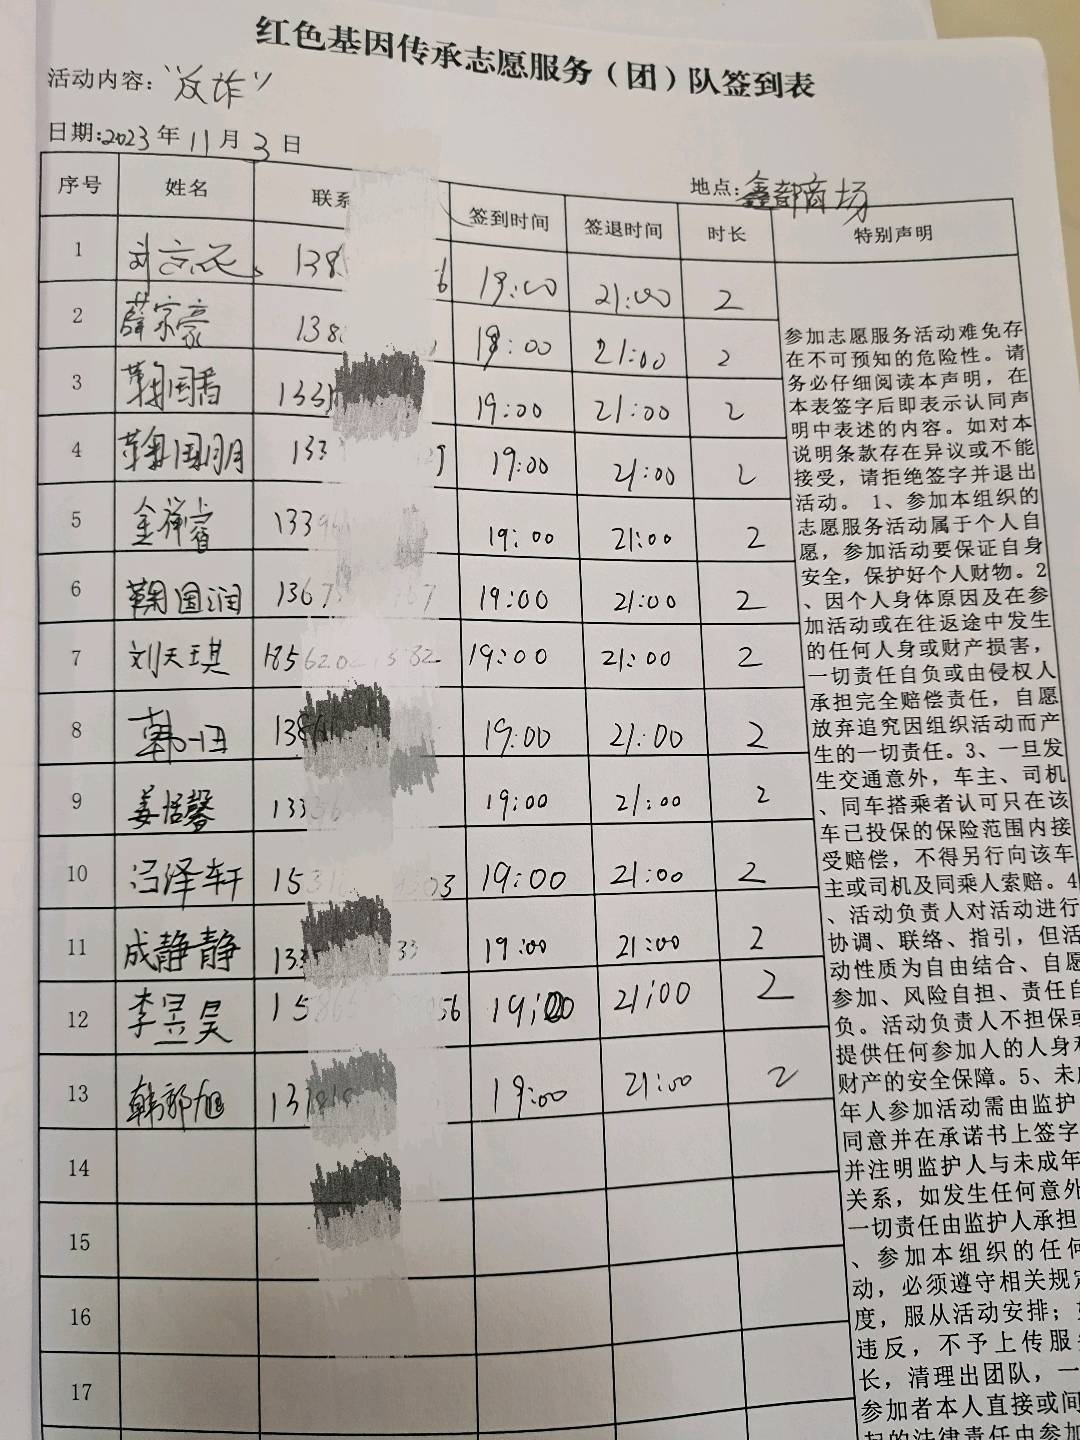 红色基因传承志愿服务（团）队签到表
活动内容：“反诈”
日期:2023年11月3日
地点:鑫都商场
序号 姓名 联系 签到时间 签退时间 时长 特别声明
1 19:00 21:00 2
2 薛宗豪 19:00 21:00 2
3 19:00 21:00 2
4 鞠国明 19:00 21:00 2
5 金祥睿 19:00 21:00 2
6 鞠国润 19:00 21:00 2
7 刘天琪 19:00 21:00 2
8 19:00 21:00 2
9 姜恬馨 19:00 21:00 2
10 冯泽轩 19:00 21:00 2
11 成静静 19:00 21:00 2
12 李昱昊 19:00 21:00 2
13 韩郭旭 19:00 21:00 2
14
15
16
17
参加志愿服务活动难免存
在不可预知的危险性。请
务必仔细阅读本声明，在
本表签字后即表示认同声
明中表述的内容。如对本
说明条款存在异议或不能
接受，请拒绝签字并退出
活动。1、参加本组织的
志愿服务活动属于个人自
愿，参加活动要保证自身
安全，保护好个人财物。2
、因个人身体原因及在参
加活动或在往返途中发生
的任何人身或财产损害，
一切责任自负或由侵权人
承担完全赔偿责任，自愿
放弃追究因组织活动而产
生的一切责任。3、一旦发
生交通意外，车主、司机
、同车搭乘者认可只在该
车已投保的保险范围内接
受赔偿，不得另行向该车
主或司机及同乘人索赔。4
、活动负责人对活动进行
协调、联络、指引，但活
动性质为自由结合、自愿
参加、风险自担、责任自
负。活动负责人不担保或
提供任何参加人的人身和
财产的安全保障。5、未成
年人参加活动需由监护
同意并在承诺书上签字
并注明监护人与未成年
关系，如发生任何意外
一切责任由监护人承担
、参加本组织的任何
动，必须遵守相关规定
度，服从活动安排；如
违反，不予上传服务
长，清理出团队，一
参加者本人直接或间
起的法律责任由参加